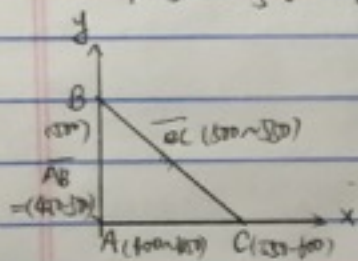 y
B
(500)
BC (500~550)
AB
=(450-500)
x
A (400~450) C (550-600)